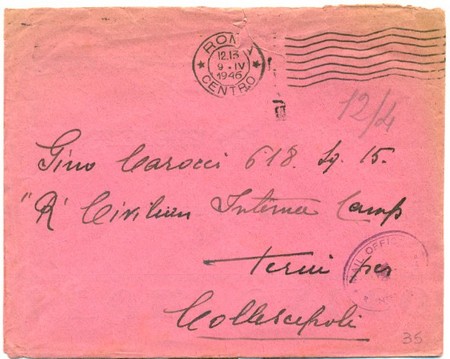 ROMA
12.15
9 - IV
1946
CENTRO
12/4
Gino Carocci 618 Sq. 15.
"R" Civilian Internee Camp
Terni per
Collescipoli
MAIL OFFI
35